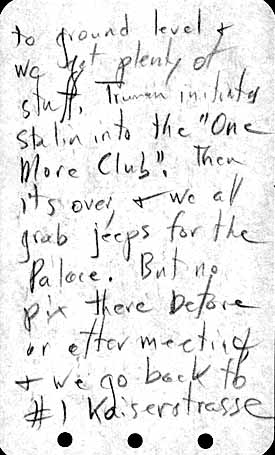 to ground level &
we get plenty of
stuff. Truman initiates
Stalin into the "One
More Club". Then
its over & we all
grab jeeps for the
Palace. But no
pix there before
or after meeting
& we go back to
#1 Kaiserstrasse